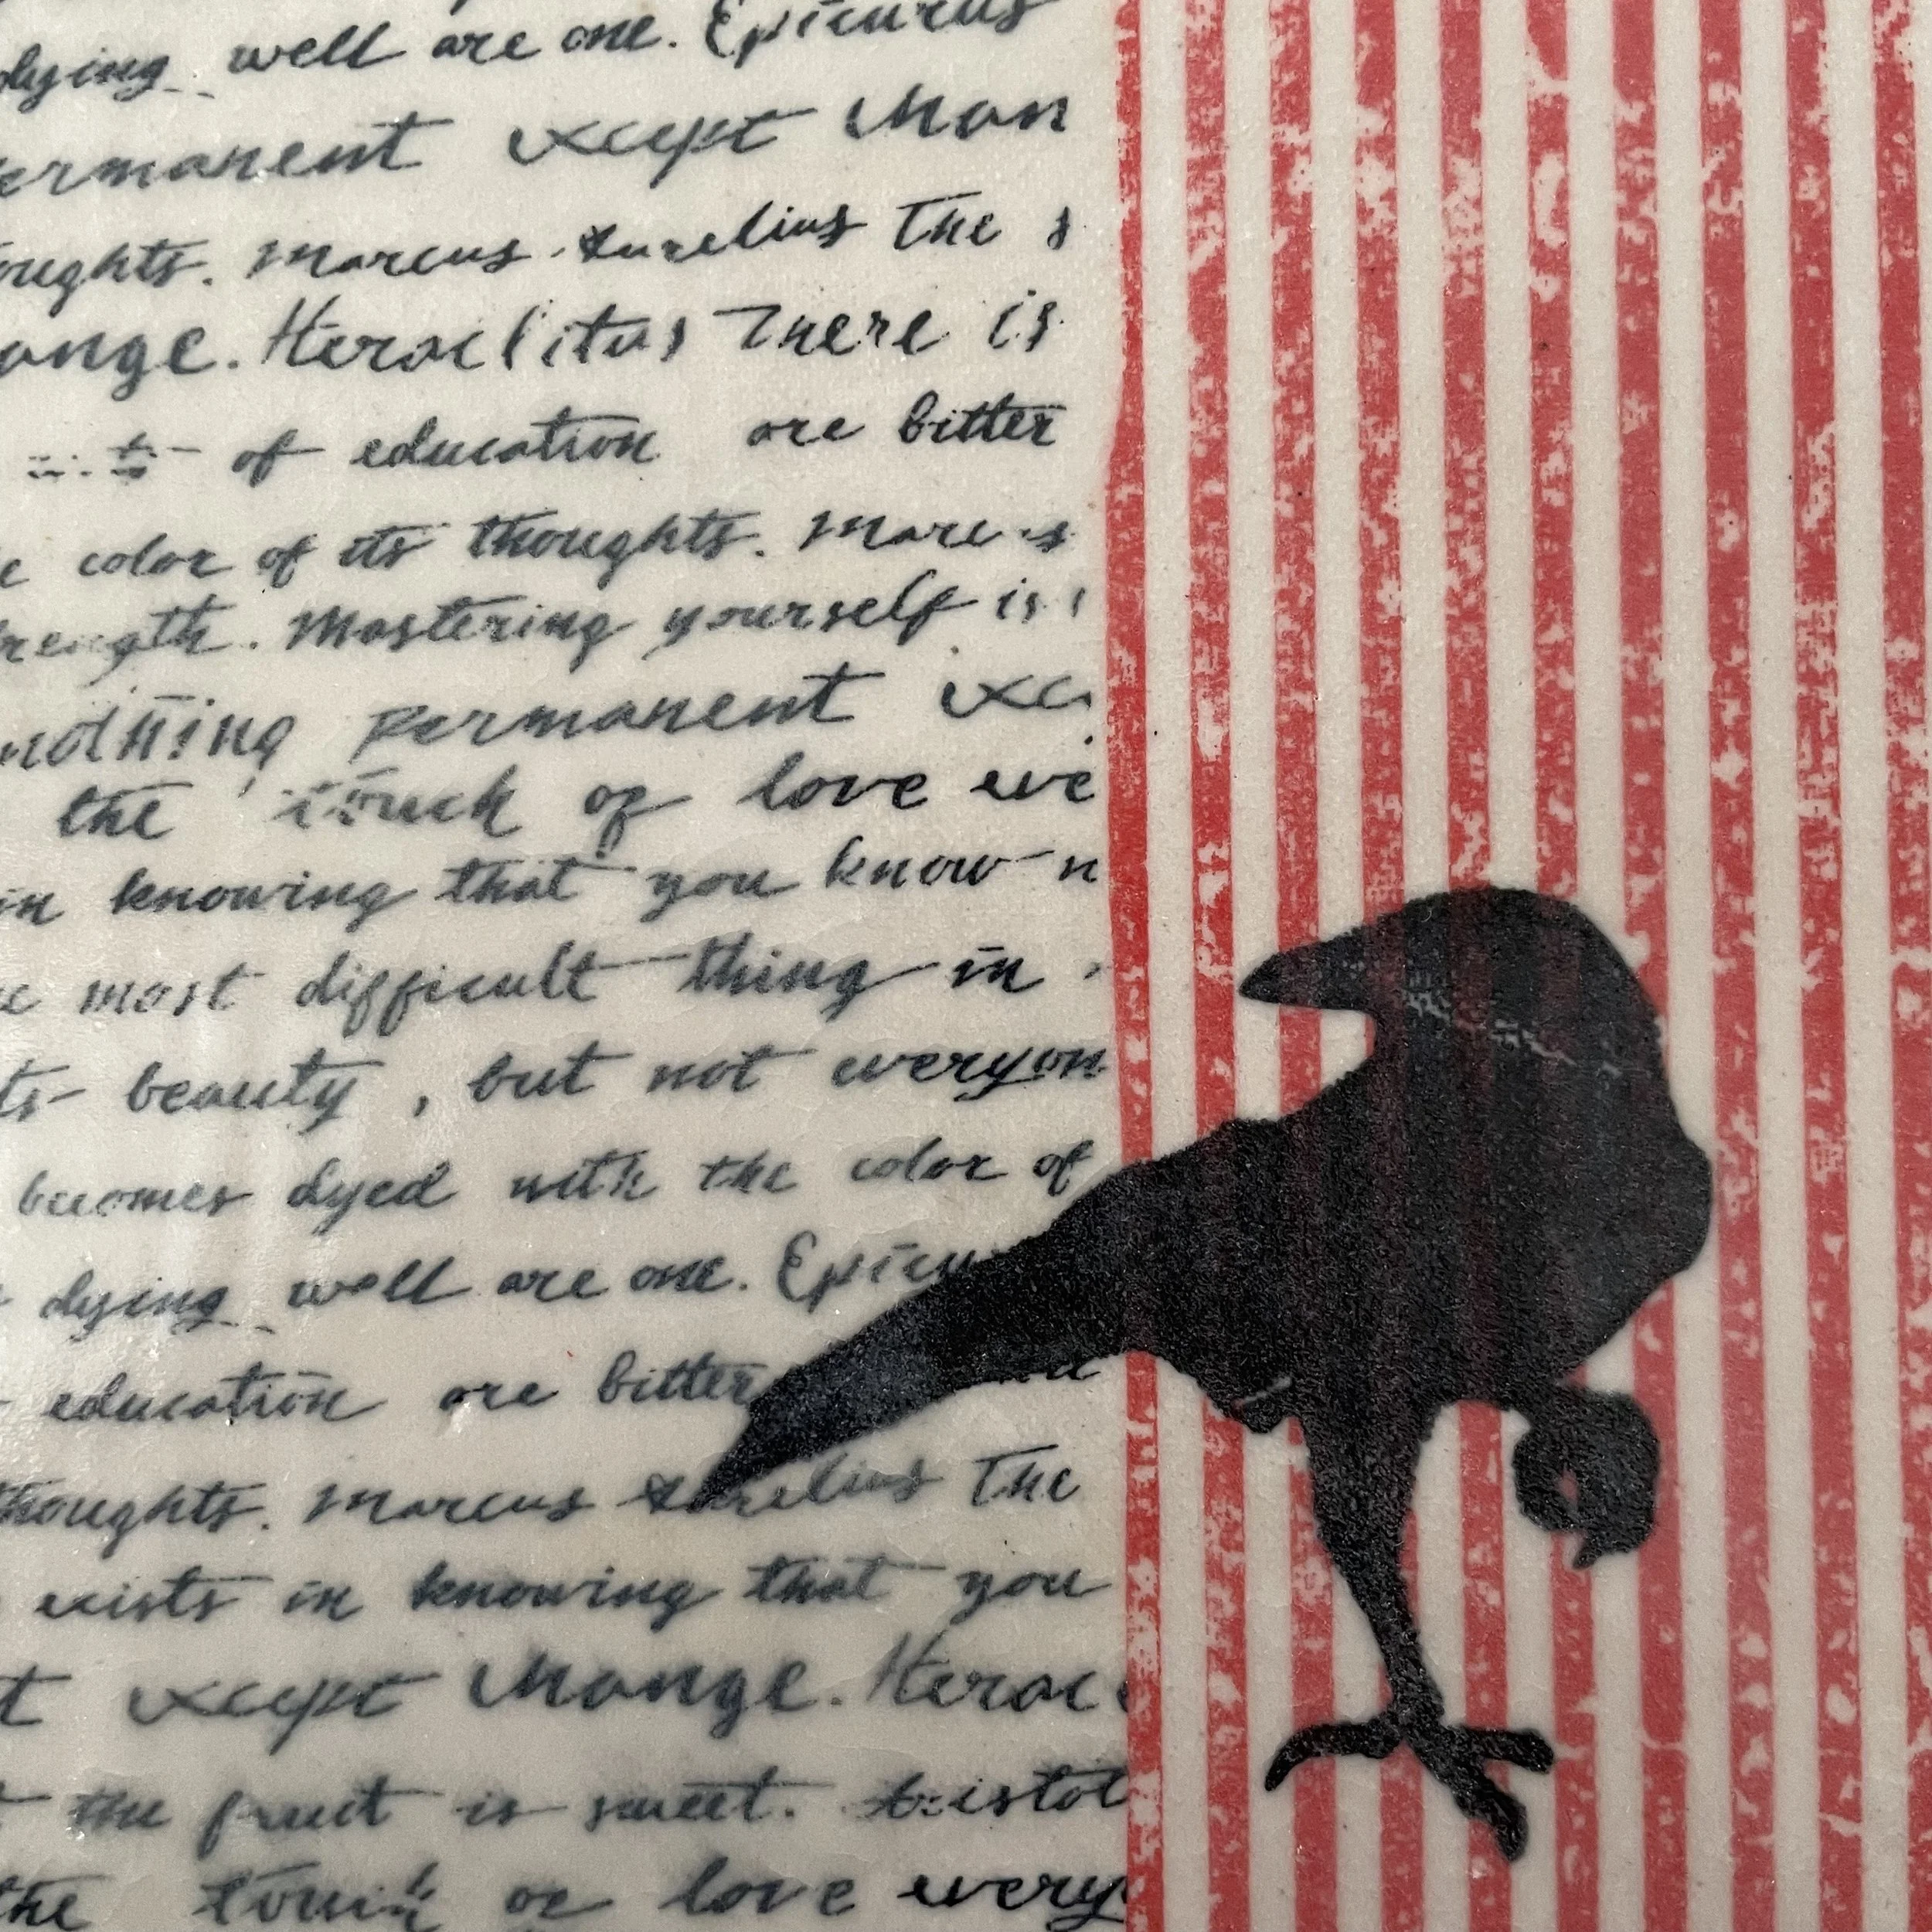 dying well are one. Epicurus
ermanent except chan
oughts. Marcus Aurelius The s
ange. Heraclitus There is
of education are bitter
e color of its thoughts. Marc s
trength. Mastering yourself is
nothing permanent exc
the touch of love eve
in knowing that you know n
e most difficult thing in
ts beauty, but not everyon
becomes dyed with the color of
dying well are one. Epicu
education are bitter
thoughts. Marcus Aurelius The
exists in knowing that you
t except change. Herac
t the fruit is sweet. Aristot
the touch of love every